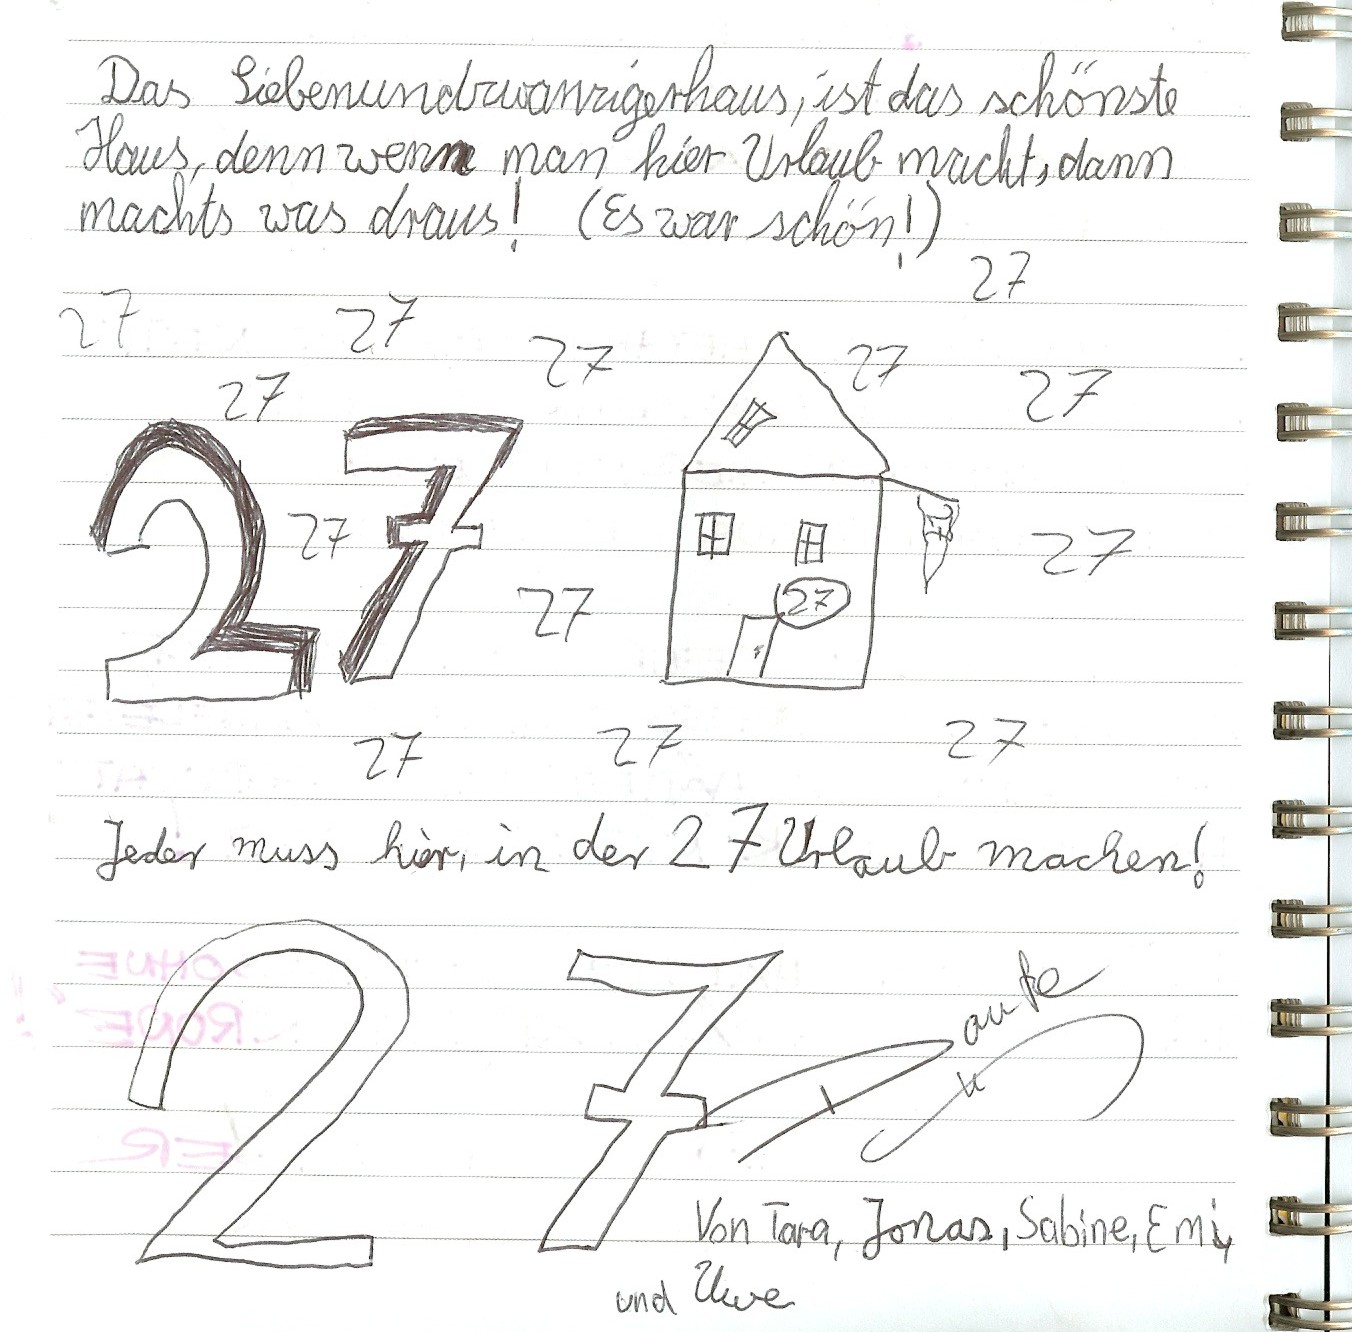 Das Siebenundzwanzigerhaus, ist das schönste
Haus, denn wenn man hier Urlaub macht, dann
machts was draus! (Es war schön!)
27
27 27 27 27 27
27
27 27 27
27
27
27
27 27 27
Jeder muss hier, in der 27 Urlaub machen!
27
Von Tara, Jonas, Sabine, Emi,
und Uwe